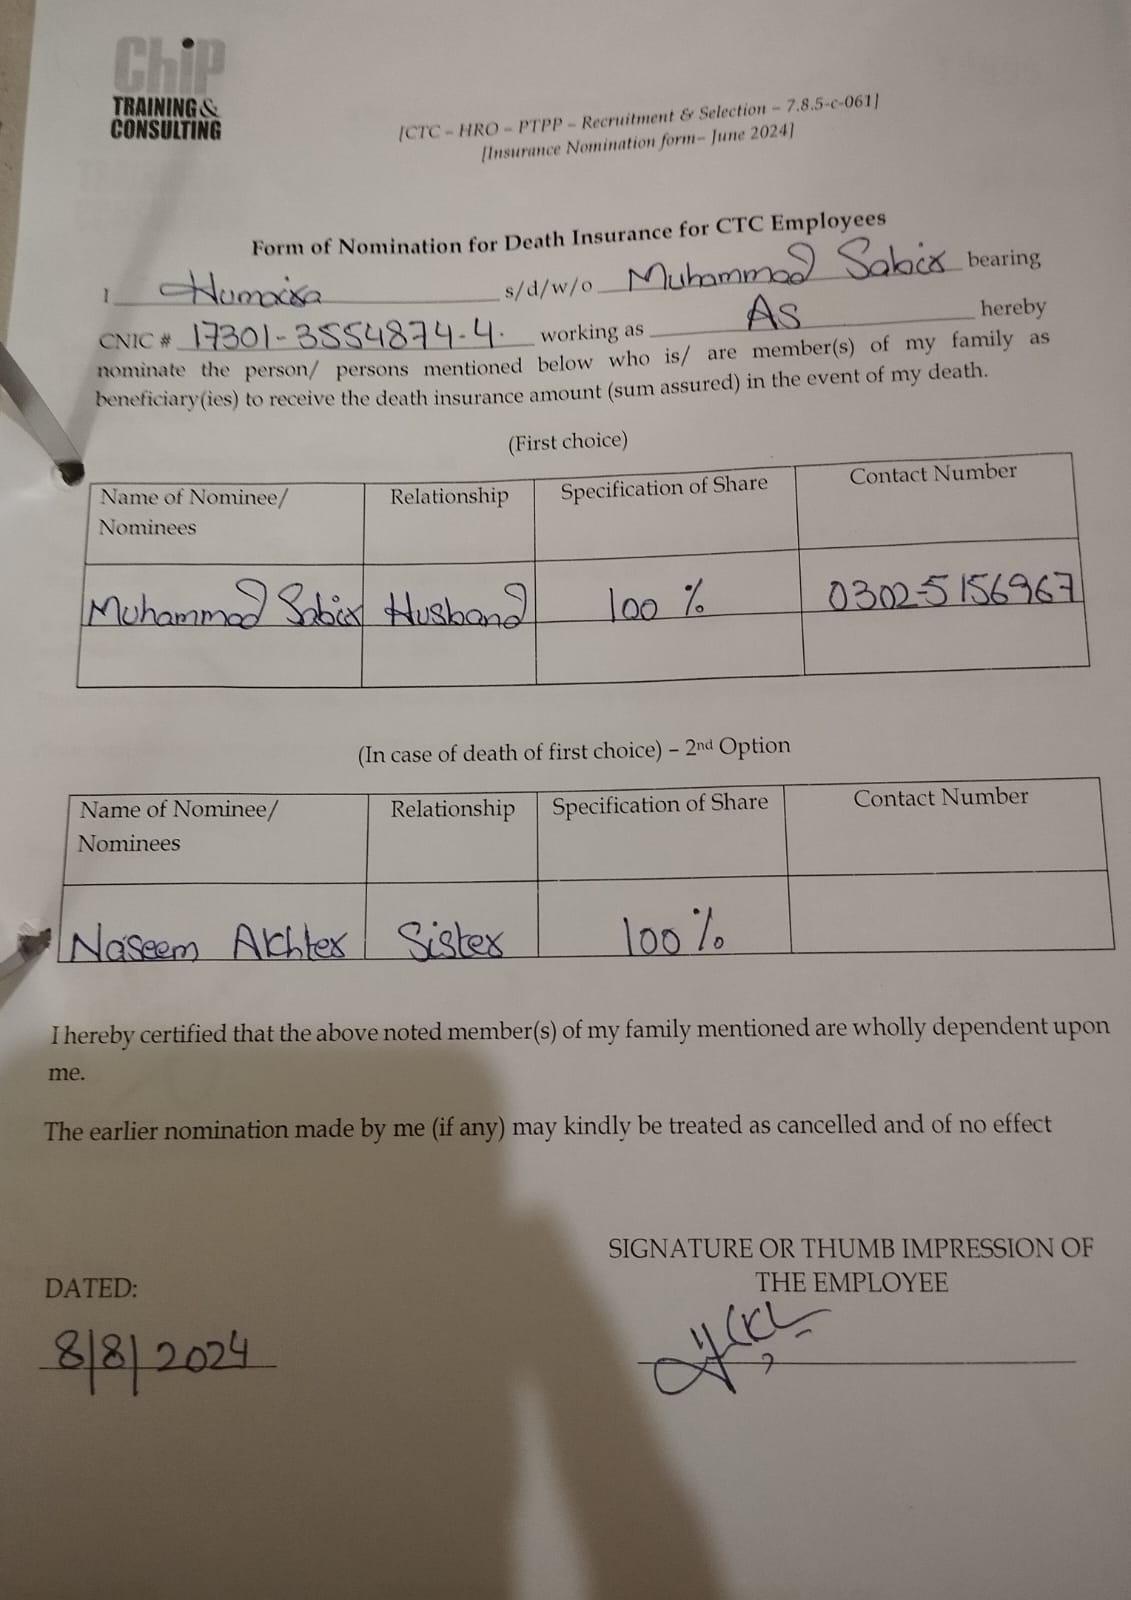 ChiP
TRAINING &
CONSULTING
[CTC – HRO – PTPP – Recruitment & Selection – 7.8.5-c-061]
[Insurance Nomination form– June 2024]
Form of Nomination for Death Insurance for CTC Employees
I Humaira s/d/w/o Muhammad Sabir bearing
CNIC # 17301-3554874-4. working as AS hereby
nominate the person/ persons mentioned below who is/ are member(s) of my family as
beneficiary(ies) to receive the death insurance amount (sum assured) in the event of my death.
(First choice)
Name of Nominee/ Relationship Specification of Share Contact Number
Nominees
Muhammad Sabir Husband 100 % 0302-5156967
(In case of death of first choice) – 2nd Option
Name of Nominee/ Relationship Specification of Share Contact Number
Nominees
Naseem Akhter Sister 100 %
I hereby certified that the above noted member(s) of my family mentioned are wholly dependent upon
me.
The earlier nomination made by me (if any) may kindly be treated as cancelled and of no effect
SIGNATURE OR THUMB IMPRESSION OF
THE EMPLOYEE
DATED:
8/8/2024